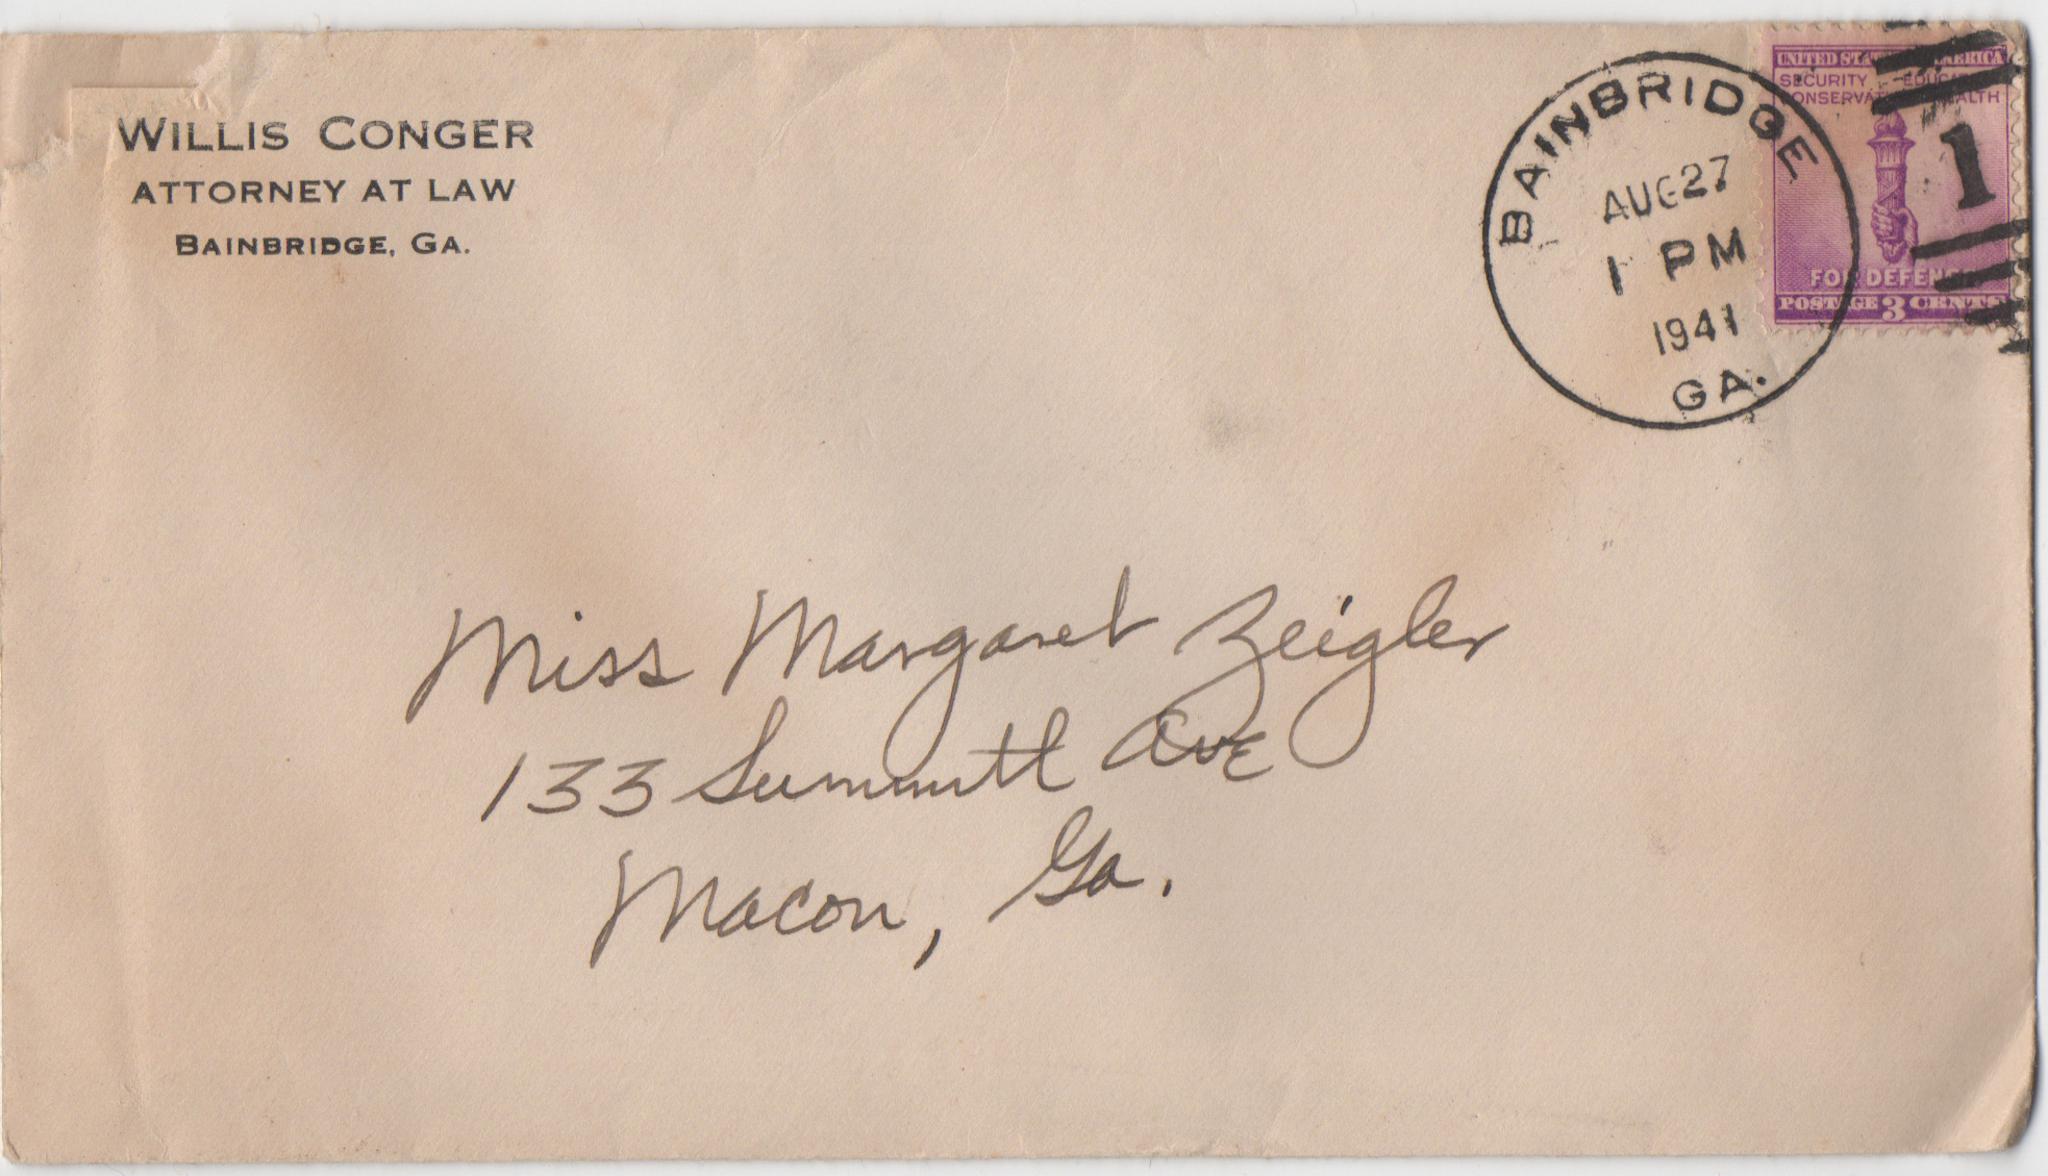 WILLIS CONGER
ATTORNEY AT LAW
BAINBRIDGE, GA.
BAINBRIDGE
AUG 27
1 PM
1941
GA.
UNITED STA MERICA
SECURITY EDUCA
CONSERVAT ALTH
1
FOR DEFENS
POSTAGE 3 CENTS
Miss Margaret Zeigler
133 Summitt Ave
Macon, Ga.